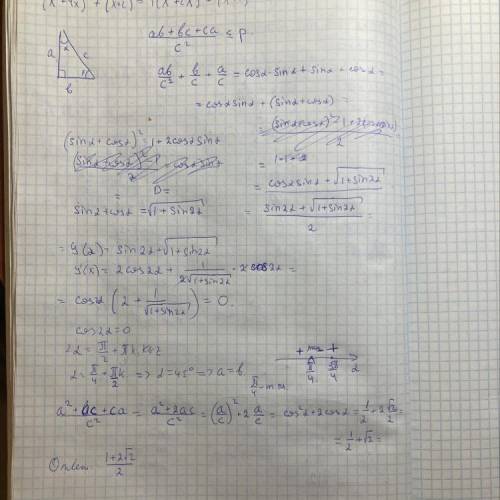 (x+4x) + (x+c) =
(ab+bc+ca)/c² ≤ p.
a α c
b
ab/c² + b/c + a/c = cosα·sinα + sinα + cosα =
= cosα sinα + (sinα + cosα) =
(sinα+cosα)² = 1 + 2cosα sinα
= 1-1-2
D=
= cosα sinα + √(1+sin2α)
sinα + cosα = √(1+sin2α)
= (sin2α + √(1+sin2α))/2 =
= y(α) = sin2α + √(1+sin2α)
y'(x) = 2cos2α + 1/(2√(1+sin2α)) · 2cos2α =
= cosα (2 + 1/√(1+sin2α)) = 0.
cos2α = 0
2α = π/2 + πk, k∈Z
+ max +
π/4 5π/4 α
α = π/4 + πk/2 => α = 45° => a = b.
π/4 - т. m.
(a² + ac + ca)/c² = (a² + 2ac)/c² = (a/c)² + 2 a/c = cos²α + 2cosα = 1/2 + 2√2/2 =
= 1/2 + √2 =
Ответ (1+2√2)/2